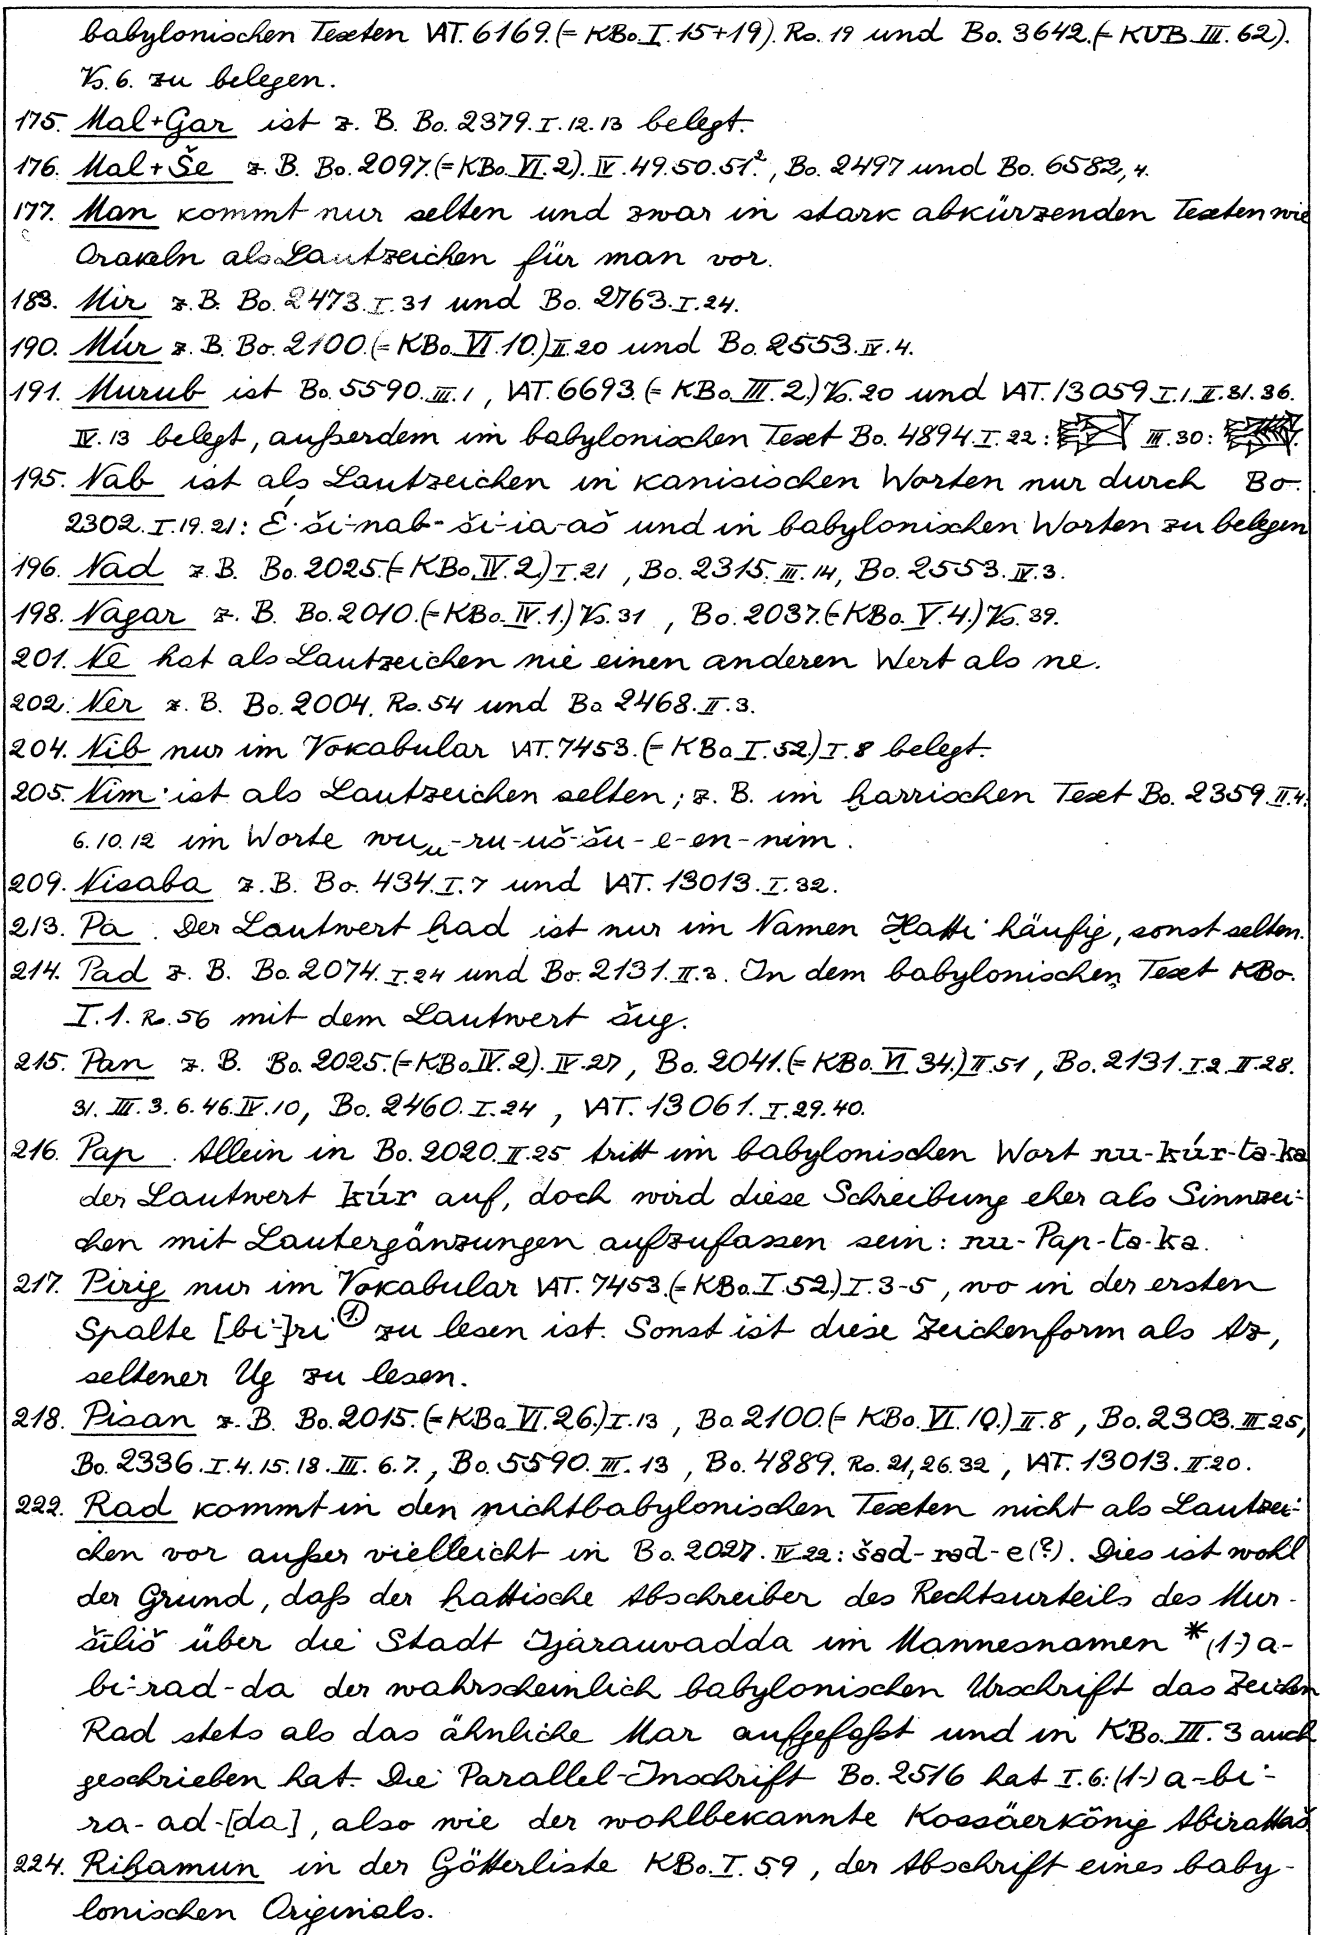 babylonischen Texten VAT. 6169. (= KBo. I. 15+19). Rs. 19 und Bo. 3642. (= KUB. III. 62).
Vs. 6. zu belegen.
175. Mal+Gar ist z. B. Bo. 2379. I. 12. 13 belegt.
176. Mal+Še z. B. Bo. 2097. (= KBo. VI. 2). IV. 49. 50. 51², Bo. 2497 und Bo. 6582, 4.
177. Man kommt nur selten und zwar in stark abkürzenden Texten wie
Orakeln als Lautzeichen für man vor.
183. Mir z. B. Bo. 2473. I. 31 und Bo. 2763. I. 24.
190. Múr z. B. Bo. 2100. (= KBo. VI. 10.) II. 20 und Bo. 2553. IV. 4.
191. Murub ist Bo. 5590. III. 1, VAT. 6693. (= KBo. III. 2.) Vs. 20 und VAT. 13059 I. 1. II. 31. 36.
IV. 13 belegt, außerdem im babylonischen Text Bo. 4894. I. 22: III. 30:
195. Nab ist als Lautzeichen in kanisischen Worten nur durch Bo.
2302. I. 19. 21: É-ši-nab-ši-ia-aš und in babylonischen Worten zu belegen
196. Nad z. B. Bo. 2025. (= KBo. IV. 2.) I. 21, Bo. 2315. III. 14, Bo. 2553. IV. 3.
198. Nagar z. B. Bo. 2010. (= KBo. IV. 1.) Vs. 31, Bo. 2037. (= KBo. V. 4.) Vs. 39.
201. Ne hat als Lautzeichen nie einen anderen Wert als ne.
202. Ner z. B. Bo. 2004. Rs. 54 und Bo 2468. II. 3.
204. Nib nur im Vokabular VAT. 7453. (= KBo I. 52.) I. 8 belegt.
205. Nim ist als Lautzeichen selten; z. B. im ḫarrischen Text Bo. 2359. II. 4.
6. 10. 12 im Worte wuᵤ-ru-uš-šu-e-en-nim.
209. Nisaba z. B. Bo. 434. I. 7 und VAT. 13013. I. 32.
213. Pa. Der Lautwert ḫad ist nur im Namen Ḫatti häufig, sonst selten.
214. Pad z. B. Bo. 2074. I. 24 und Bo. 2131. II. 3. In dem babylonischen Text KBo.
I. 1. Rs. 56 mit dem Lautwert šug.
215. Pan z. B. Bo. 2025. (= KBo. IV. 2). IV. 27, Bo. 2041. (= KBo. VI. 34.) II. 51, Bo. 2131. I. 2. II. 28.
31. III. 3. 6. 46. IV. 10, Bo. 2460. I. 24, VAT. 13061. I. 29. 40.
216. Pap. Allein in Bo. 2020. II. 25 tritt im babylonischen Wort nu-kúr-ta-ka
der Lautwert kúr auf, doch wird diese Schreibung eher als Sinnzei-
chen mit Lautergänzungen aufzufassen sein: nu-Pap-ta-ka.
217. Pirig nur im Vokabular VAT. 7453. (= KBo. I. 52.) I. 3-5, wo in der ersten
Spalte [bi-]ri (1.) zu lesen ist. Sonst ist diese Zeichenform als Az,
seltener Ug zu lesen.
218. Pisan z. B. Bo. 2015. (= KBo VI. 26.) I. 13, Bo. 2100. (= KBo. VI. 10.) II. 8, Bo. 2303. III. 25,
Bo. 2336. I. 4. 15. 18. III. 6. 7., Bo. 5590. III. 13, Bo. 4889. Rs. 21, 26. 32, VAT. 13013. II. 20.
222. Rad kommt in den nichtbabylonischen Texten nicht als Lautzei-
chen vor außer vielleicht in Bo. 2027. IV. 22: šad-rad-e(?). Dies ist wohl
der Grund, daß der ḫattische Abschreiber des Rechtsurteils des Mur-
šiliš über die Stadt Ijarauvadda im Mannesnamen * (1-) a-
bi-rad-da der wahrscheinlich babylonischen Urschrift das Zeichen
Rad stets als das ähnliche Mar aufgefaßt und in KBo. III. 3 auch
geschrieben hat. Die Parallel-Inschrift Bo. 2516 hat I. 6: (1-) a-bi-
ra-ad-[da], also wie der wohlbekannte Kossäerkönig Abirattaš.
224. Riḫamun in der Götterliste KBo. I. 59, der Abschrift eines baby-
lonischen Originals.